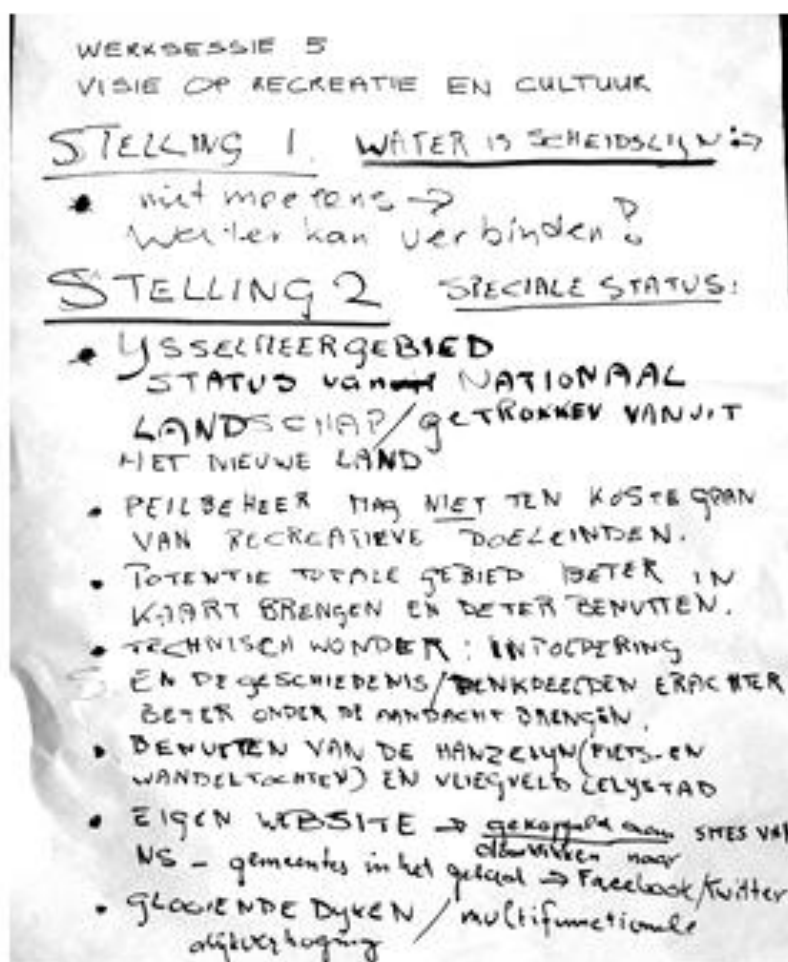 WERKSESSIE 5
VISIE OP RECREATIE EN CULTUUR
STELLING 1. WATER IS SCHEIDSLIJN :→
• niet moe eens →
Water kan verbinden!
STELLING 2 SPECIALE STATUS:
• IJSSELMEERGEBIED
STATUS van NATIONAAL
LANDSCHAP/getrokken VANUIT
HET NIEUWE LAND
• PEILBEHEER MAG NIET TEN KOSTE GAAN
VAN RECREATIEVE DOELEINDEN.
• POTENTIE TOTALE GEBIED BETER IN
KAART BRENGEN EN BETER BENUTTEN.
• TECHNISCH WONDER: INPOLDERING
EN DE GESCHIEDENIS/DENKBEELDEN ERACHTER
BETER ONDER DE AANDACHT BRENGEN.
• BENUTTEN VAN DE HANZELIJN (FIETS- EN
WANDELTOCHTEN) EN VLIEGVELD LELYSTAD
• EIGEN WEBSITE → gekoppeld aan SITES VAN
doorklikken naar
NS - gemeentes in het gebied → Facebook/Twitter
• GLOOIENDE DIJKEN / multifunctionele
dijkverhoging